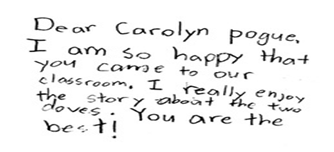 Dear Carolyn pogue,
I am so happy that
you came to our
classroom. I really enjoy
the story about the two
doves. You are the
best!